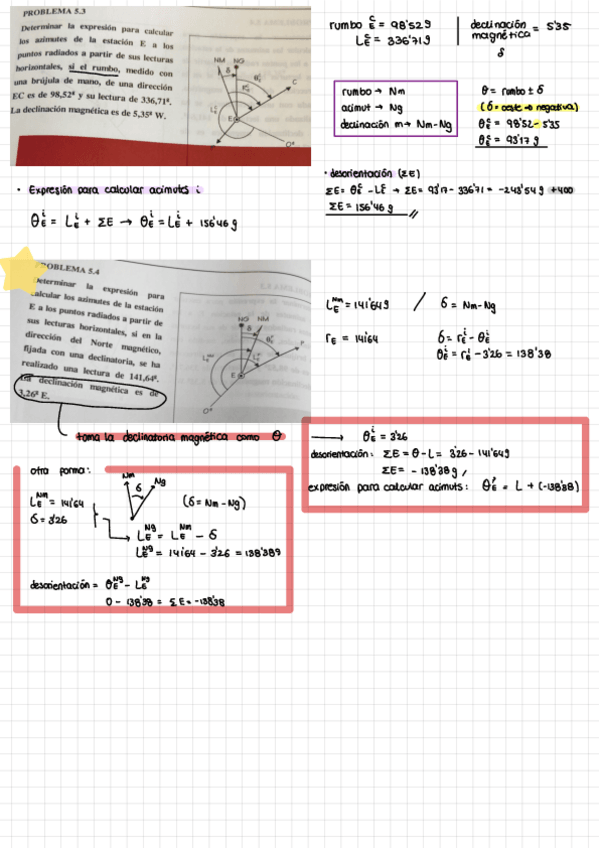 PROBLEMA 5.3
Determinar la expresión para calcular
los azimutes de la estación E a los
puntos radiados a partir de sus lecturas
horizontales, si el rumbo, medido con
una brújula de mano, de una dirección
EC es de 98,52g y su lectura de 336,71g.
La declinación magnética es de 5,35g W.
NM NG
δ
C
E
Og
rumbo C E = 98'52g
LE C = 336'71g
declinación magnética = 5'35
δ
rumbo → Nm
acimut → Ng
declinación m → Nm-Ng
θ = rumbo ± δ
(δ = oeste → negativa)
θE C = 98'52 - 5'35
θE C = 93'17 g
• Expresión para calcular acimutes i
θE i = LE i + ΣE → θE i = LE i + 156'46 g
• desorientación (ΣE)
ΣE = θE C - LE C → ΣE = 93'17 - 336'71 = -243'54 g +400
ΣE = 156'46 g //
PROBLEMA 5.4
Determinar la expresión para
calcular los azimutes de la estación
E a los puntos radiados a partir de
sus lecturas horizontales, si en la
dirección del Norte magnético,
fijada con una declinatoria, se ha
realizado una lectura de 141,64g.
La declinación magnética es de
3,26g E.
NG NM
δ
E
Og
LE Nm = 141'64g / δ = Nm-Ng
rE = 141'64 δ = rE i - θE i
θE i = rE i - 3'26 = 138'38
toma la declinatoria magnética como θ
→ θE i = 3'26
desorientación: ΣE = θ - L = 3'26 - 141'64g
ΣE = - 138'38 g
expresión para calcular acimuts: θE i = L + (-138'38)
otra forma:
Nm Ng
δ
(δ = Nm - Ng)
LE Nm = 141'64
δ = 3'26
LE Ng = LE Nm - δ
LE Ng = 141'64 - 3'26 = 138'38g
desorientación = θE Ng - LE Ng
0 - 138'38 = ΣE = -138'38